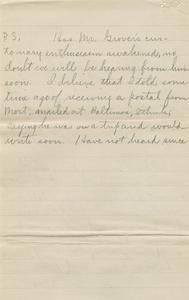 P.S. Has Mr. Grove's cus-
tomary enthusiasm awakened, no
doubt we will be hearing from him
soon. I believe that I told some
time ago of receiving a postal from
Mort, mailed at Baltimore,
saying he was on a trip and would
write soon. I have not heard since